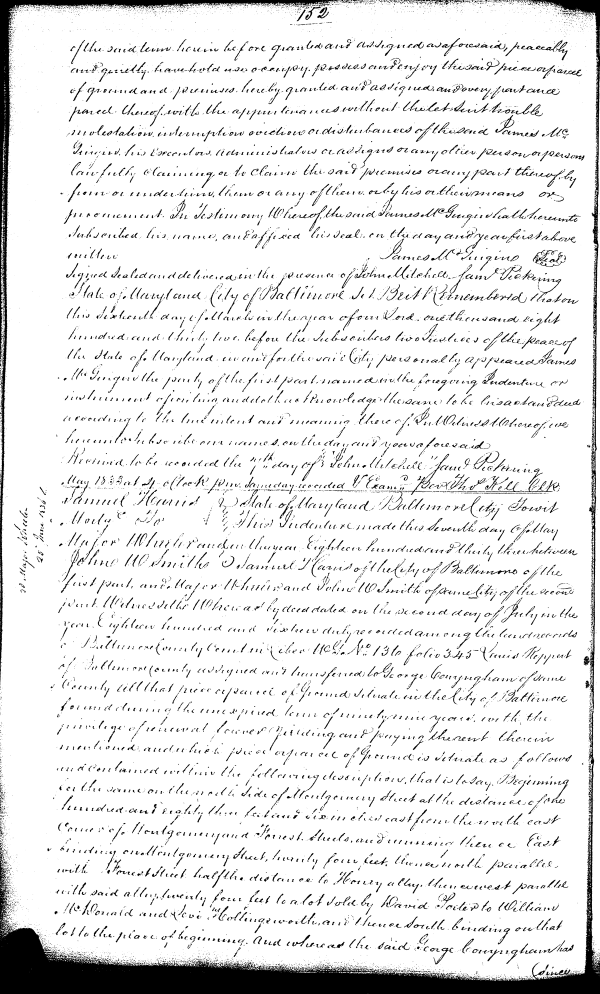 152
of the said term herein before granted and assigned as aforesaid, peaceably
and quietly have hold use occupy, possess and enjoy the said piece or parcel
of ground and premises hereby granted and assigned, and every part and
parcel thereof, with the appurtenances without the let suit trouble
molestation, interruption eviction or disturbances of the said James Mc
Guigin, his Executors, Administrators or assigns or any other person or persons
lawfully claiming or to claim the said premises or any part thereof, by
from or under him, them or any of them, or by his or their means or
procurement. In Testimony Whereof the said James Mc Guigin hath hereunto
subscribed his name, and affixed his seal on the day and year first above
written James Mc Guigins (Seal)
Signed Sealed and delivered in the presence of John Mitchell Saml Pickering
State of Maryland City of Baltimore Sct. Be it Remembered that on
this Sixteenth day of March in the year of our Lord one thousand eight
hundred and thirty two, before the Subscribers two Justices of the peace of
the State of Maryland in and for the said City personally appeared James
Mc Guigin the party of the first part named in the foregoing Indenture or
instrument of writing and doth acknowledge the same to be his act and deed
according to the true intent and meaning thereof. In Witness Whereof we
hereunto Subscribe our names, on the day and year aforesaid
Received to be recorded the 7th day of John Mitchell Saml Pickering
May 1832 at 4 oClock p.m. Same day recorded & Examd per Th Kell Clk.
Samuel Harris State of Maryland Baltimore City, Towit
Mortg To This Indenture made this Seventh day of May
Major Wheeler and in the year Eighteen hundred and thirty three between
John W Smith Samuel Harris of the City of Baltimore of the
first part, and Major Wheeler and John W Smith of same city of the second
part Witnesseth Whereas by deed dated on the second day of July in the
year Eighteen hundred and Sixteen duly recorded among the land records
of Baltimore County Court in Liber W G No 136 folio 345 Lewis Heppert
of Baltimore County assigned and transferred to George Conyngham of same
County all that piece or parcel of Ground situate in the City of Baltimore
for and during the unexpired term of ninety nine years, with the
privilege of renewal forever yielding and paying the rent therein
mentioned and which piece or parcel of Ground is situate as follows
and contained within the following description, that is to say, Beginning
for the same on the north side of Montgomery Street at the distance of one
hundred and eighty three feet and six inches east from the north east
Corner of Montgomery and Forrest Streets, and running thence East
binding on Montgomery Street, twenty four feet, thence north parallel
with Forrest Street half the distance to Honey alley, thence west parallel
with said alley, twenty four feet to a lot sold by David to William
McDonald and Levi Hollingsworth, and thence south binding on that
lot to the place of beginning. And whereas the said George Conyngham has
(since